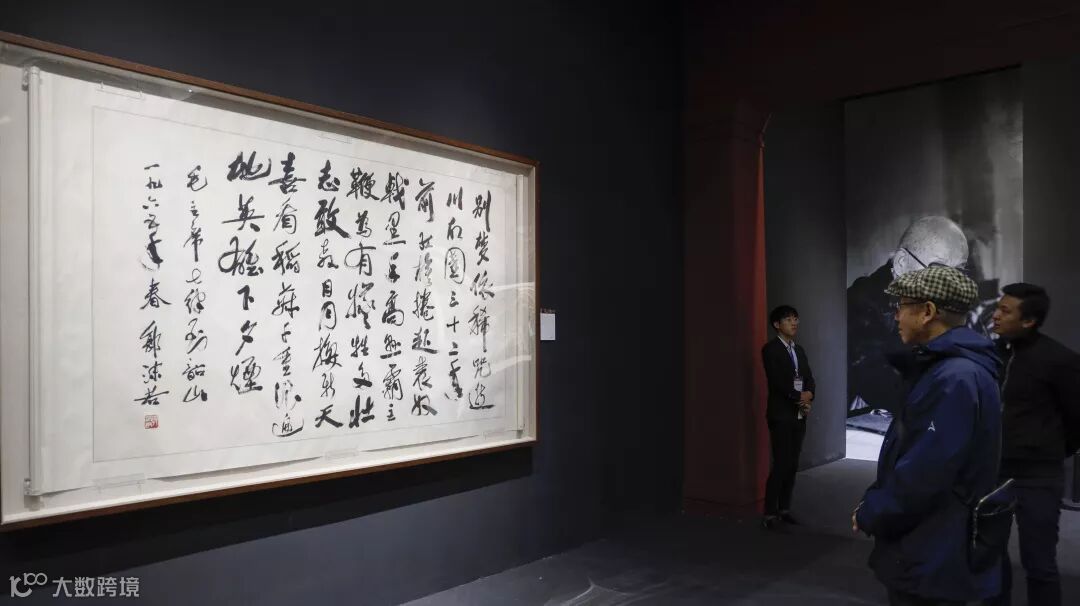 别梦依稀咒逝
川故園三十二年
前红旗捲起農奴
戟黑手高悬霸主
鞭為有犠牲多壮
志敢教日月换新天
喜看稻菽千重浪遍
地英雄下夕煙
毛主席七律到韶山
一九六五年春 郭沫若
大数跨境